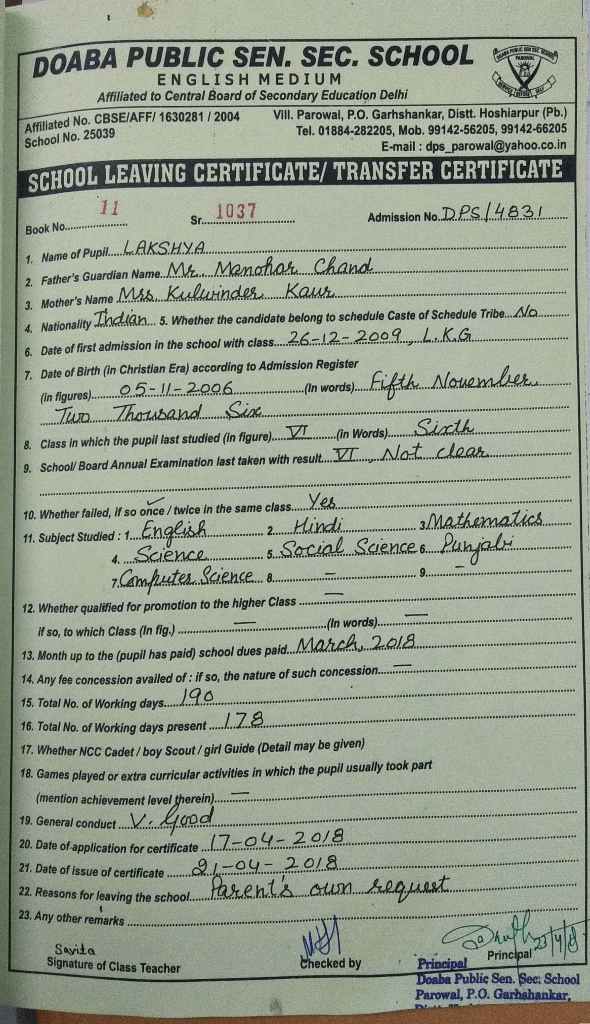 DOABA PUBLIC SEN. SEC. SCHOOL
ENGLISH MEDIUM
Affiliated to Central Board of Secondary Education Delhi
Affiliated No. CBSE/AFF/ 1630281 / 2004
School No. 25039
Vill. Parowal, P.O. Garhshankar, Distt. Hoshiarpur (Pb.)
Tel. 01884-282205, Mob. 99142-56205, 99142-66205
E-mail : dps_parowal@yahoo.co.in
SCHOOL LEAVING CERTIFICATE/ TRANSFER CERTIFICATE
Book No. 11 Sr. 1037 Admission No. DPS/4831
1. Name of Pupil LAKSHYA
2. Father's Guardian Name Mr. Manohar Chand
3. Mother's Name Mrs Kulwinder Kaur
4. Nationality Indian 5. Whether the candidate belong to schedule Caste of Schedule Tribe No
6. Date of first admission in the school with class 26-12-2009, L.K.G
7. Date of Birth (in Christian Era) according to Admission Register
(in figures) 05-11-2006 (In words) Fifth November,
Two Thousand Six
8. Class in which the pupil last studied (in figure) VI (in Words) Sixth
9. School/ Board Annual Examination last taken with result VI, Not clear
10. Whether failed, if so once / twice in the same class Yes
11. Subject Studied : 1 English 2. Hindi 3 Mathematics
4. Science 5. Social Science 6 Punjabi
7. Computer Science 8. — 9. —
12. Whether qualified for promotion to the higher Class —
if so, to which Class (In fig.) — (In words) —
13. Month up to the (pupil has paid) school dues paid March, 2018
14. Any fee concession availed of : if so, the nature of such concession —
15. Total No. of Working days 190
16. Total No. of Working days present 178
17. Whether NCC Cadet / boy Scout / girl Guide (Detail may be given)
18. Games played or extra curricular activities in which the pupil usually took part
(mention achievement level therein) —
19. General conduct V. Good
20. Date of application for certificate 17-04-2018
21. Date of issue of certificate 21-04-2018
22. Reasons for leaving the school Parent's own request
23. Any other remarks
Savita
Signature of Class Teacher
Checked by
Principal
Principal
Doaba Public Sen. Sec. School
Parowal, P.O. Garhshankar,